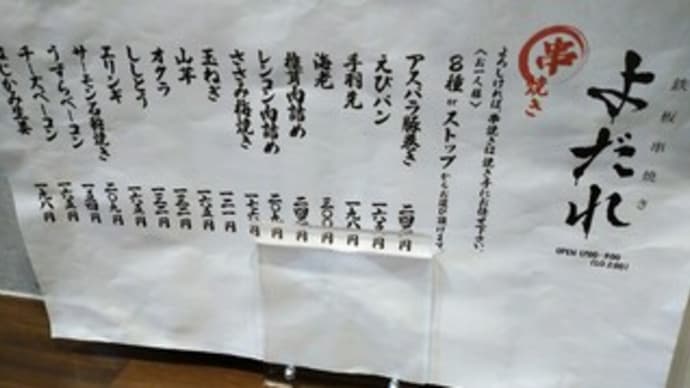 鉄板串焼き
よだれ
OPEN 17:00-
串焼き
よろしければ、串焼きは焼き手にお任せ下さい。
〈お一人様〉
8種 or ストップ からお選び頂けます。
アスパラ豚巻き
えびパン 一六五円
手羽先 一九八円
海老 三〇〇円
椎茸肉詰め
レンコン肉詰め 二〇九円
ささみ梅焼き 一七六円
玉ねぎ 一二一円
山芋 一六五円
オクラ 一三二円
ししとう 一三二円
エリンギ 一六五円
サーモン石垣焼き 二〇九円
うずらベーコン 一五四円
チーズベーコン 一六五円
はじかみ生姜 一九八円